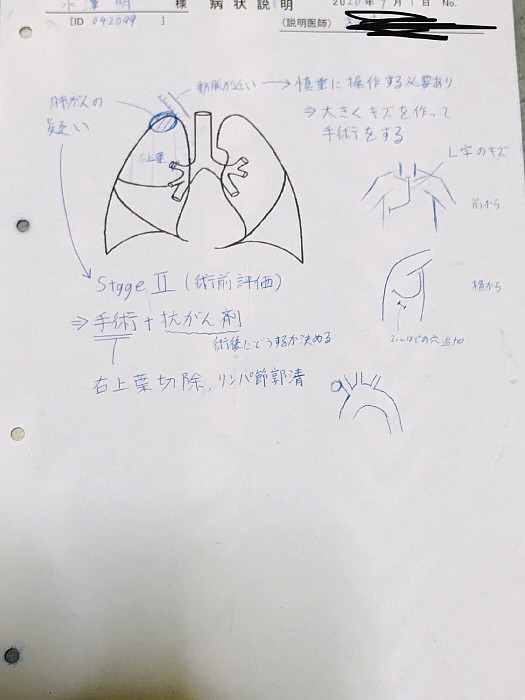 様 病状説明 2020年9月1日 No.
[ID 042099 ] (説明医師)
動脈が近い → 慎重に操作する必要あり
肺がんの
疑い
⇒ 大きくキズを作って
手術をする
右上葉
L字のキズ
前から
Stage II (術前評価)
横から
⇒ 手術 + 抗がん剤
術後にどうするか決める
2cmほどの穴追加
右上葉切除, リンパ節郭清